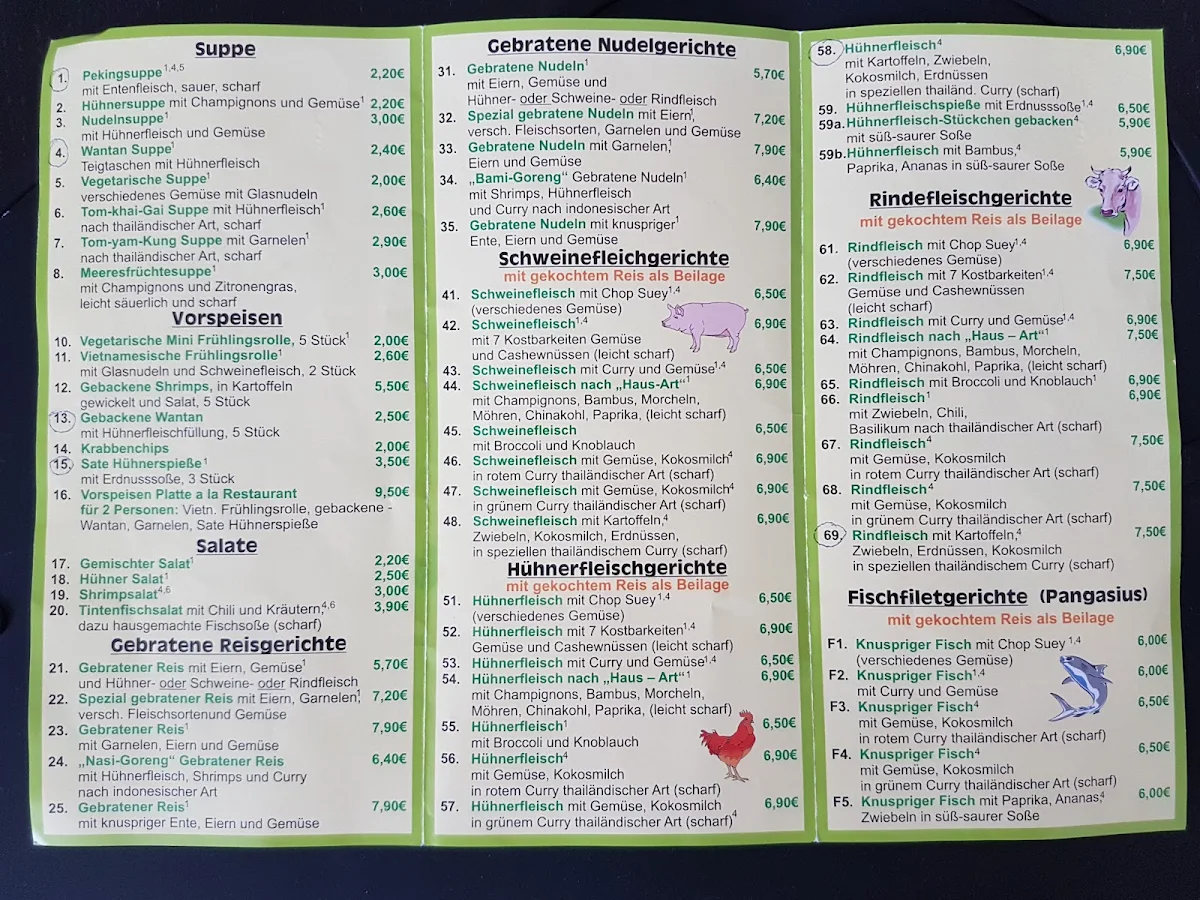 Suppe
1. Pekingsuppe 1,4,5 2,20€
mit Entenfleisch, sauer, scharf
2. Hühnersuppe mit Champignons und Gemüse1 2,20€
3. Nudelnsuppe1 3,00€
mit Hühnerfleisch und Gemüse
4. Wantan Suppe1 2,40€
Teigtaschen mit Hühnerfleisch
5. Vegetarische Suppe1 2,00€
verschiedenes Gemüse mit Glasnudeln
6. Tom-khai-Gai Suppe mit Hühnerfleisch1 2,60€
nach thailändischer Art, scharf
7. Tom-yam-Kung Suppe mit Garnelen1 2,90€
nach thailändischer Art, scharf
8. Meeresfrüchtesuppe1 3,00€
mit Champignons und Zitronengras,
leicht säuerlich und scharf
Vorspeisen
10. Vegetarische Mini Frühlingsrolle, 5 Stück1 2,00€
11. Vietnamesische Frühlingsrolle1 2,60€
mit Glasnudeln und Schweinefleisch, 2 Stück
12. Gebackene Shrimps, in Kartoffeln 5,50€
gewickelt und Salat, 5 Stück
13. Gebackene Wantan 2,50€
mit Hühnerfleischfüllung, 5 Stück
14. Krabbenchips 2,00€
15. Sate Hühnerspieße1 3,50€
mit Erdnusssoße, 3 Stück
16. Vorspeisen Platte a la Restaurant 9,50€
für 2 Personen: Vietn. Frühlingsrolle, gebackene -
Wantan, Garnelen, Sate Hühnerspieße
Salate
17. Gemischter Salat1 2,20€
18. Hühner Salat1 2,50€
19. Shrimpsalat4,6 3,00€
20. Tintenfischsalat mit Chili und Kräutern,4,6 3,90€
dazu hausgemachte Fischsoße (scharf)
Gebratene Reisgerichte
21. Gebratener Reis mit Eiern, Gemüse1 5,70€
und Hühner- oder Schweine- oder Rindfleisch
22. Spezial gebratener Reis mit Eiern, Garnelen,1 7,20€
versch. Fleischsortenund Gemüse
23. Gebratener Reis1 7,90€
mit Garnelen, Eiern und Gemüse
24. „Nasi-Goreng“ Gebratener Reis 6,40€
mit Hühnerfleisch, Shrimps und Curry
nach indonesischer Art
25. Gebratener Reis1 7,90€
mit knuspriger Ente, Eiern und Gemüse
Gebratene Nudelgerichte
31. Gebratene Nudeln1 5,70€
mit Eiern, Gemüse und
Hühner- oder Schweine- oder Rindfleisch
32. Spezial gebratene Nudeln mit Eiern,1 7,20€
versch. Fleischsorten, Garnelen und Gemüse
33. Gebratene Nudeln mit Garnelen,1 7,90€
Eiern und Gemüse
34. „Bami-Goreng“ Gebratene Nudeln1 6,40€
mit Shrimps, Hühnerfleisch
und Curry nach indonesischer Art
35. Gebratene Nudeln mit knuspriger1 7,90€
Ente, Eiern und Gemüse
Schweinefleichgerichte
mit gekochtem Reis als Beilage
41. Schweinefleisch mit Chop Suey1,4 6,50€
(verschiedenes Gemüse)
42. Schweinefleisch1,4 6,90€
mit 7 Kostbarkeiten Gemüse
und Cashewnüssen (leicht scharf)
43. Schweinefleisch mit Curry und Gemüse1,4 6,50€
44. Schweinefleisch nach „Haus-Art“1 6,90€
mit Champignons, Bambus, Morcheln,
Möhren, Chinakohl, Paprika, (leicht scharf)
45. Schweinefleisch 6,50€
mit Broccoli und Knoblauch
46. Schweinefleisch mit Gemüse, Kokosmilch4 6,90€
in rotem Curry thailändischer Art (scharf)
47. Schweinefleisch mit Gemüse, Kokosmilch4 6,90€
in grünem Curry thailändischer Art (scharf)
48. Schweinefleisch mit Kartoffeln,4 6,90€
Zwiebeln, Kokosmilch, Erdnüssen,
in speziellen thailändischem Curry (scharf)
Hühnerfleischgerichte
mit gekochtem Reis als Beilage
51. Hühnerfleisch mit Chop Suey1,4 6,50€
(verschiedenes Gemüse)
52. Hühnerfleisch mit 7 Kostbarkeiten1,4 6,90€
Gemüse und Cashewnüssen (leicht scharf)
53. Hühnerfleisch mit Curry und Gemüse1,4 6,50€
54. Hühnerfleisch nach „Haus – Art“1 6,90€
mit Champignons, Bambus, Morcheln,
Möhren, Chinakohl, Paprika, (leicht scharf)
55. Hühnerfleisch1 6,50€
mit Broccoli und Knoblauch
56. Hühnerfleisch4 6,90€
mit Gemüse, Kokosmilch
in rotem Curry thailändischer Art (scharf)
57. Hühnerfleisch mit Gemüse, Kokosmilch 6,90€
in grünem Curry thailändischer Art (scharf)4
58. Hühnerfleisch4 6,90€
mit Kartoffeln, Zwiebeln,
Kokosmilch, Erdnüssen
in speziellen thailänd. Curry (scharf)
59. Hühnerfleischspieße mit Erdnusssoße1,4 6,50€
59a. Hühnerfleisch-Stückchen gebacken4 5,90€
mit süß-saurer Soße
59b. Hühnerfleisch mit Bambus,4 5,90€
Paprika, Ananas in süß-saurer Soße
Rindefleischgerichte
mit gekochtem Reis als Beilage
61. Rindfleisch mit Chop Suey1,4 6,90€
(verschiedenes Gemüse)
62. Rindfleisch mit 7 Kostbarkeiten1,4 7,50€
Gemüse und Cashewnüssen
(leicht scharf)
63. Rindfleisch mit Curry und Gemüse1,4 6,90€
64. Rindfleisch nach „Haus – Art“1 7,50€
mit Champignons, Bambus, Morcheln,
Möhren, Chinakohl, Paprika, (leicht scharf)
65. Rindfleisch mit Broccoli und Knoblauch1 6,90€
66. Rindfleisch1 6,90€
mit Zwiebeln, Chili,
Basilikum nach thailändischer Art (scharf)
67. Rindfleisch4 7,50€
mit Gemüse, Kokosmilch
in rotem Curry thailändischer Art (scharf)
68. Rindfleisch4 7,50€
mit Gemüse, Kokosmilch
in grünem Curry thailändischer Art (scharf)
69. Rindfleisch mit Kartoffeln,4 7,50€
Zwiebeln, Erdnüssen, Kokosmilch
in speziellen thailändischem Curry (scharf)
Fischfiletgerichte (Pangasius)
mit gekochtem Reis als Beilage
F1. Knuspriger Fisch mit Chop Suey 1,4 6,00€
(verschiedenes Gemüse)
F2. Knuspriger Fisch1,4 6,00€
mit Curry und Gemüse
F3. Knuspriger Fisch4 6,50€
mit Gemüse, Kokosmilch
in rotem Curry thailändischer Art (scharf)
F4. Knuspriger Fisch4 6,50€
mit Gemüse, Kokosmilch
in grünem Curry thailändischer Art (scharf)
F5. Knuspriger Fisch mit Paprika, Ananas,4 6,00€
Zwiebeln in süß-saurer Soße